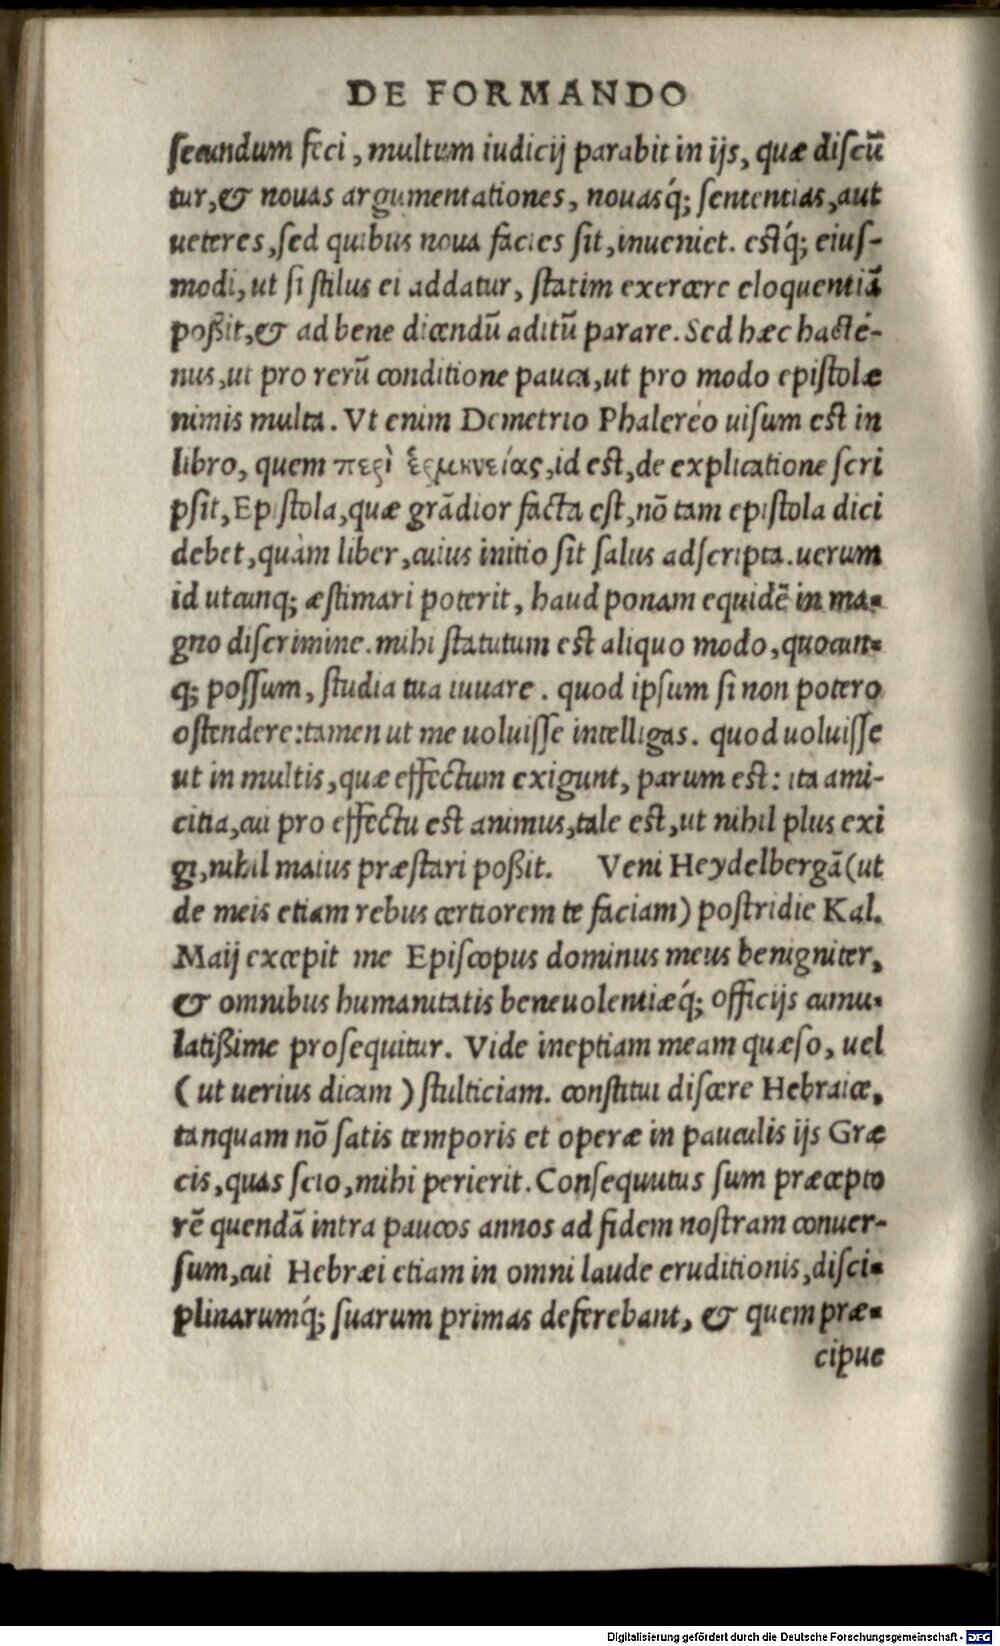 DE FORMANDO
secundum feci, multum iudicij parabit in ijs, quæ discū
tur, & nouas argumentationes, nouasq́; sententias, aut
ueteres, sed quibus noua facies sit, inueniet. estq́; eius-
modi, ut si stilus ei addatur, statim exercere eloquentiā
poßit, & ad bene dicendū aditū parare. Sed hæc hacté-
nus, ut pro rerū conditione pauca, ut pro modo epistolæ
nimis multa. Vt enim Demetrio Phaleréo uisum est in
libro, quem περὶ ἑρμηνείας, id est, de explicatione scri
psit, Epistola, quæ grādior facta est, nō tam epistola dici
debet, quàm liber, cuius initio sit salus adscripta. uerum
id utcunq; æstimari poterit, haud ponam equidē in ma-
gno discrimine. mihi statutum est aliquo modo, quocun-
q; possum, studia tua iuuare. quod ipsum si non potero
ostendere: tamen ut me uoluisse intelligas. quod uoluisse
ut in multis, quæ effectum exigunt, parum est: ita ami-
citia, cui pro effectu est animus, tale est, ut nihil plus exi
gi, nihil maius præstari poßit. Veni Heydelbergā (ut
de meis etiam rebus certiorem te faciam) postridie Kal.
Maij excepit me Episcopus dominus meus benigniter,
& omnibus humanitatis beneuolentiæq́; officijs cumu-
latißime prosequitur. Vide ineptiam meam quæso, uel
(ut uerius dicam) stulticiam. constitui discere Hebraice,
tanquam nō satis temporis et operæ in pauculis ijs Græ
cis, quas scio, mihi perierit. Consequutus sum præcepto
rē quendā intra paucos annos ad fidem nostram conuer-
sum, cui Hebræi etiam in omni laude eruditionis, disci-
plinarumq́; suarum primas deferebant, & quem præ-
cipue
Digitalisierung gefördert durch die Deutsche Forschungsgemeinschaft - DFG